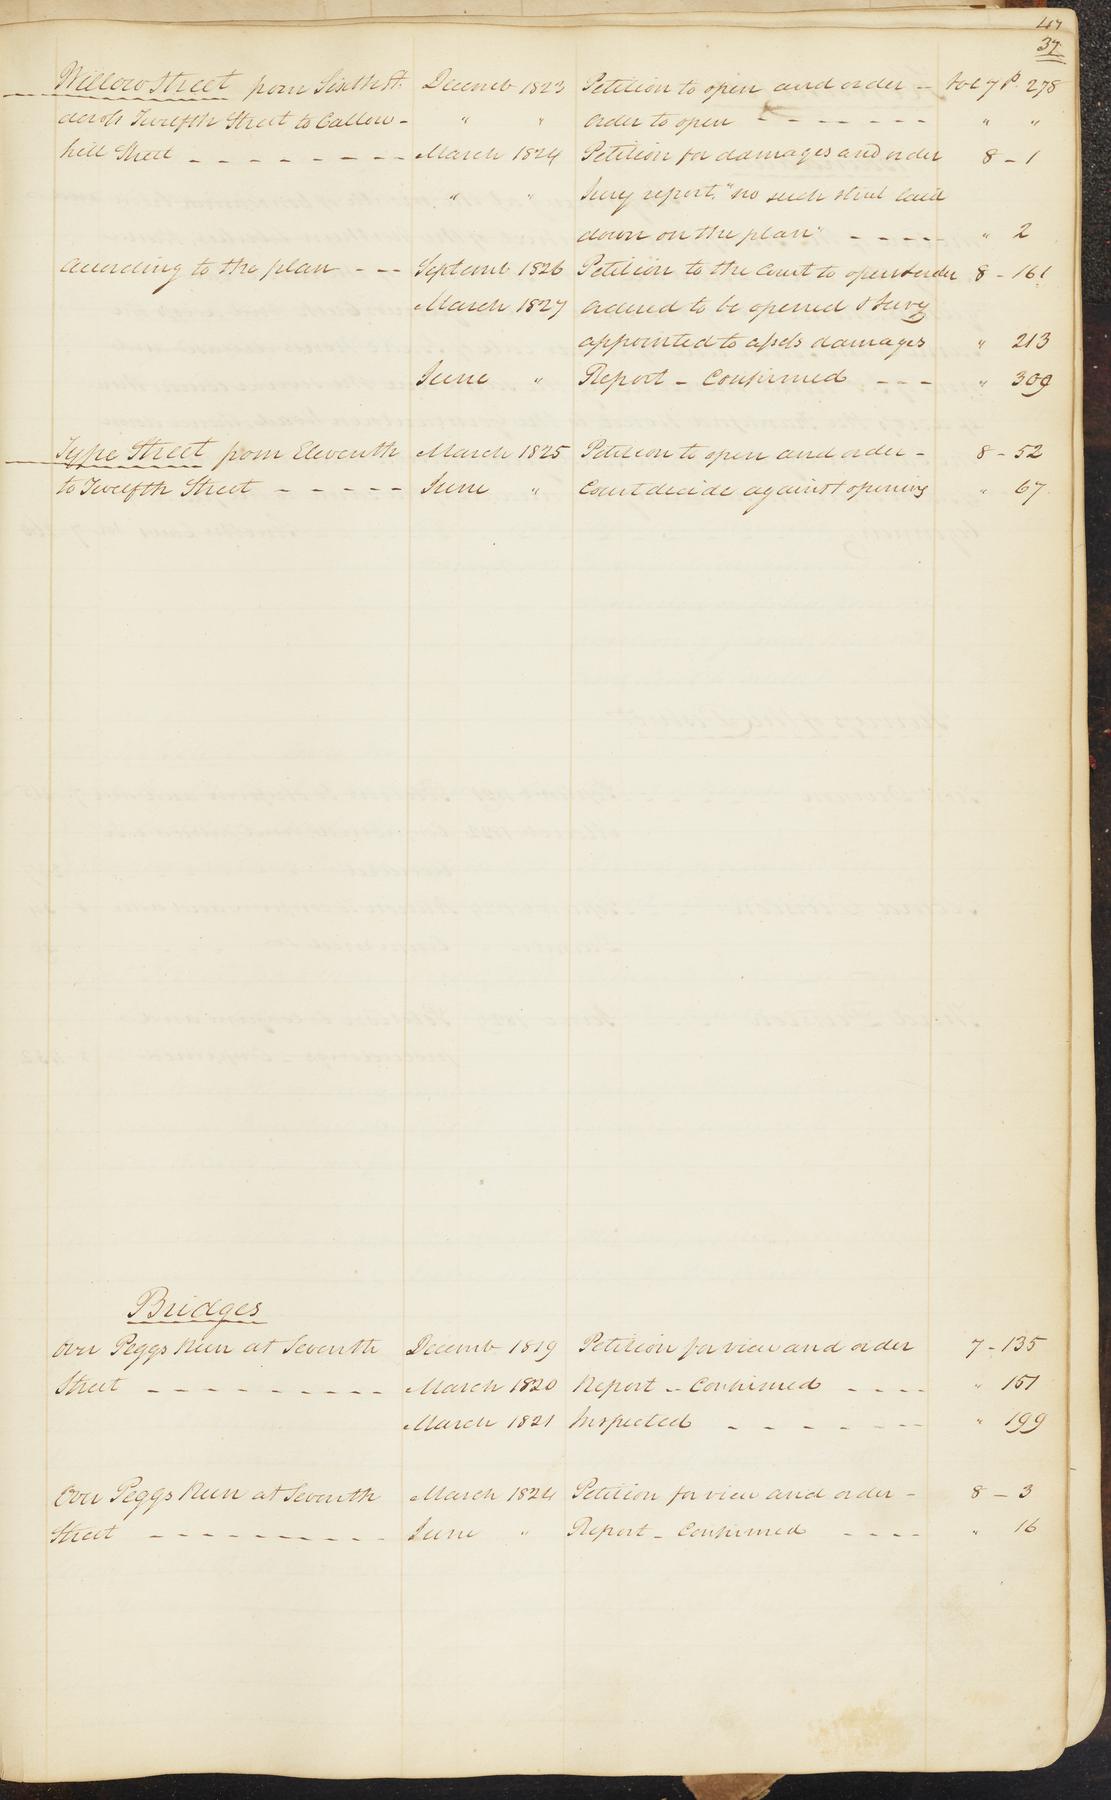 47
37
Willow Street from Sixth St. Decemb 1823 Petition to open and order - Vol 7 P. 278
across Twelfth Street to Callow- " " Order to open - - - - - - - " "
hill Street - - - - - - - - March 1824 Petition for damages and order 8 - 1
" " Jury report, "no such street laid
down on the plan" - - - - " 2
According to the plan - - - Septemb 1826 Petition to the Court to open & order 8 - 161
March 1827 Ordered to be opened & Jury
appointed to assess damages " 213
June " Report - Confirmed - - - " 309
Type Street from Eleventh March 1825 Petition to open and order - 8 - 52
to Twelfth Street - - - - - June " Court decide against opening " 67
Bridges
Over Peggs Run at Seventh Decemb 1819 Petition for view and order 7 - 135
Street - - - - - - - - - March 1820 Report - Confirmed - - - - " 151
March 1821 Inspected - - - - - - " 199
Over Peggs Run at Seventh March 1824 Petition for view and order - 8 - 3
Street - - - - - - - - - June " Report - Confirmed - - - - " 16